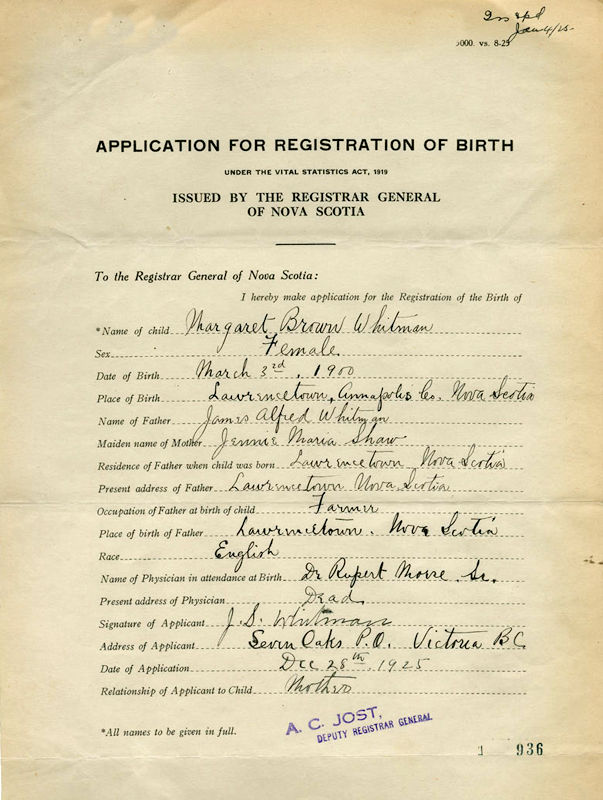 Jan 4/26
000. vs. 8-25
APPLICATION FOR REGISTRATION OF BIRTH
UNDER THE VITAL STATISTICS ACT, 1919
ISSUED BY THE REGISTRAR GENERAL
OF NOVA SCOTIA
To the Registrar General of Nova Scotia:
I hereby make application for the Registration of the Birth of
*Name of child Margaret Brown Whitman
Sex Female
Date of Birth March 3rd, 1900
Place of Birth Lawrencetown, Annapolis Co. Nova Scotia
Name of Father James Alfred Whitman
Maiden name of Mother Jennie Maria Shaw
Residence of Father when child was born Lawrencetown Nova Scotia
Present address of Father Lawrencetown Nova Scotia
Occupation of Father at birth of child Farmer
Place of birth of Father Lawrencetown. Nova Scotia
Race English
Name of Physician in attendance at Birth Dr Rupert Morse Sr.
Present address of Physician Dead
Signature of Applicant J. S. Whitman
Address of Applicant Seven Oaks P.O. Victoria BC
Date of Application Dec 28th, 1925
Relationship of Applicant to Child Mother
*All names to be given in full.
A. C. JOST,
DEPUTY REGISTRAR GENERAL
1 936